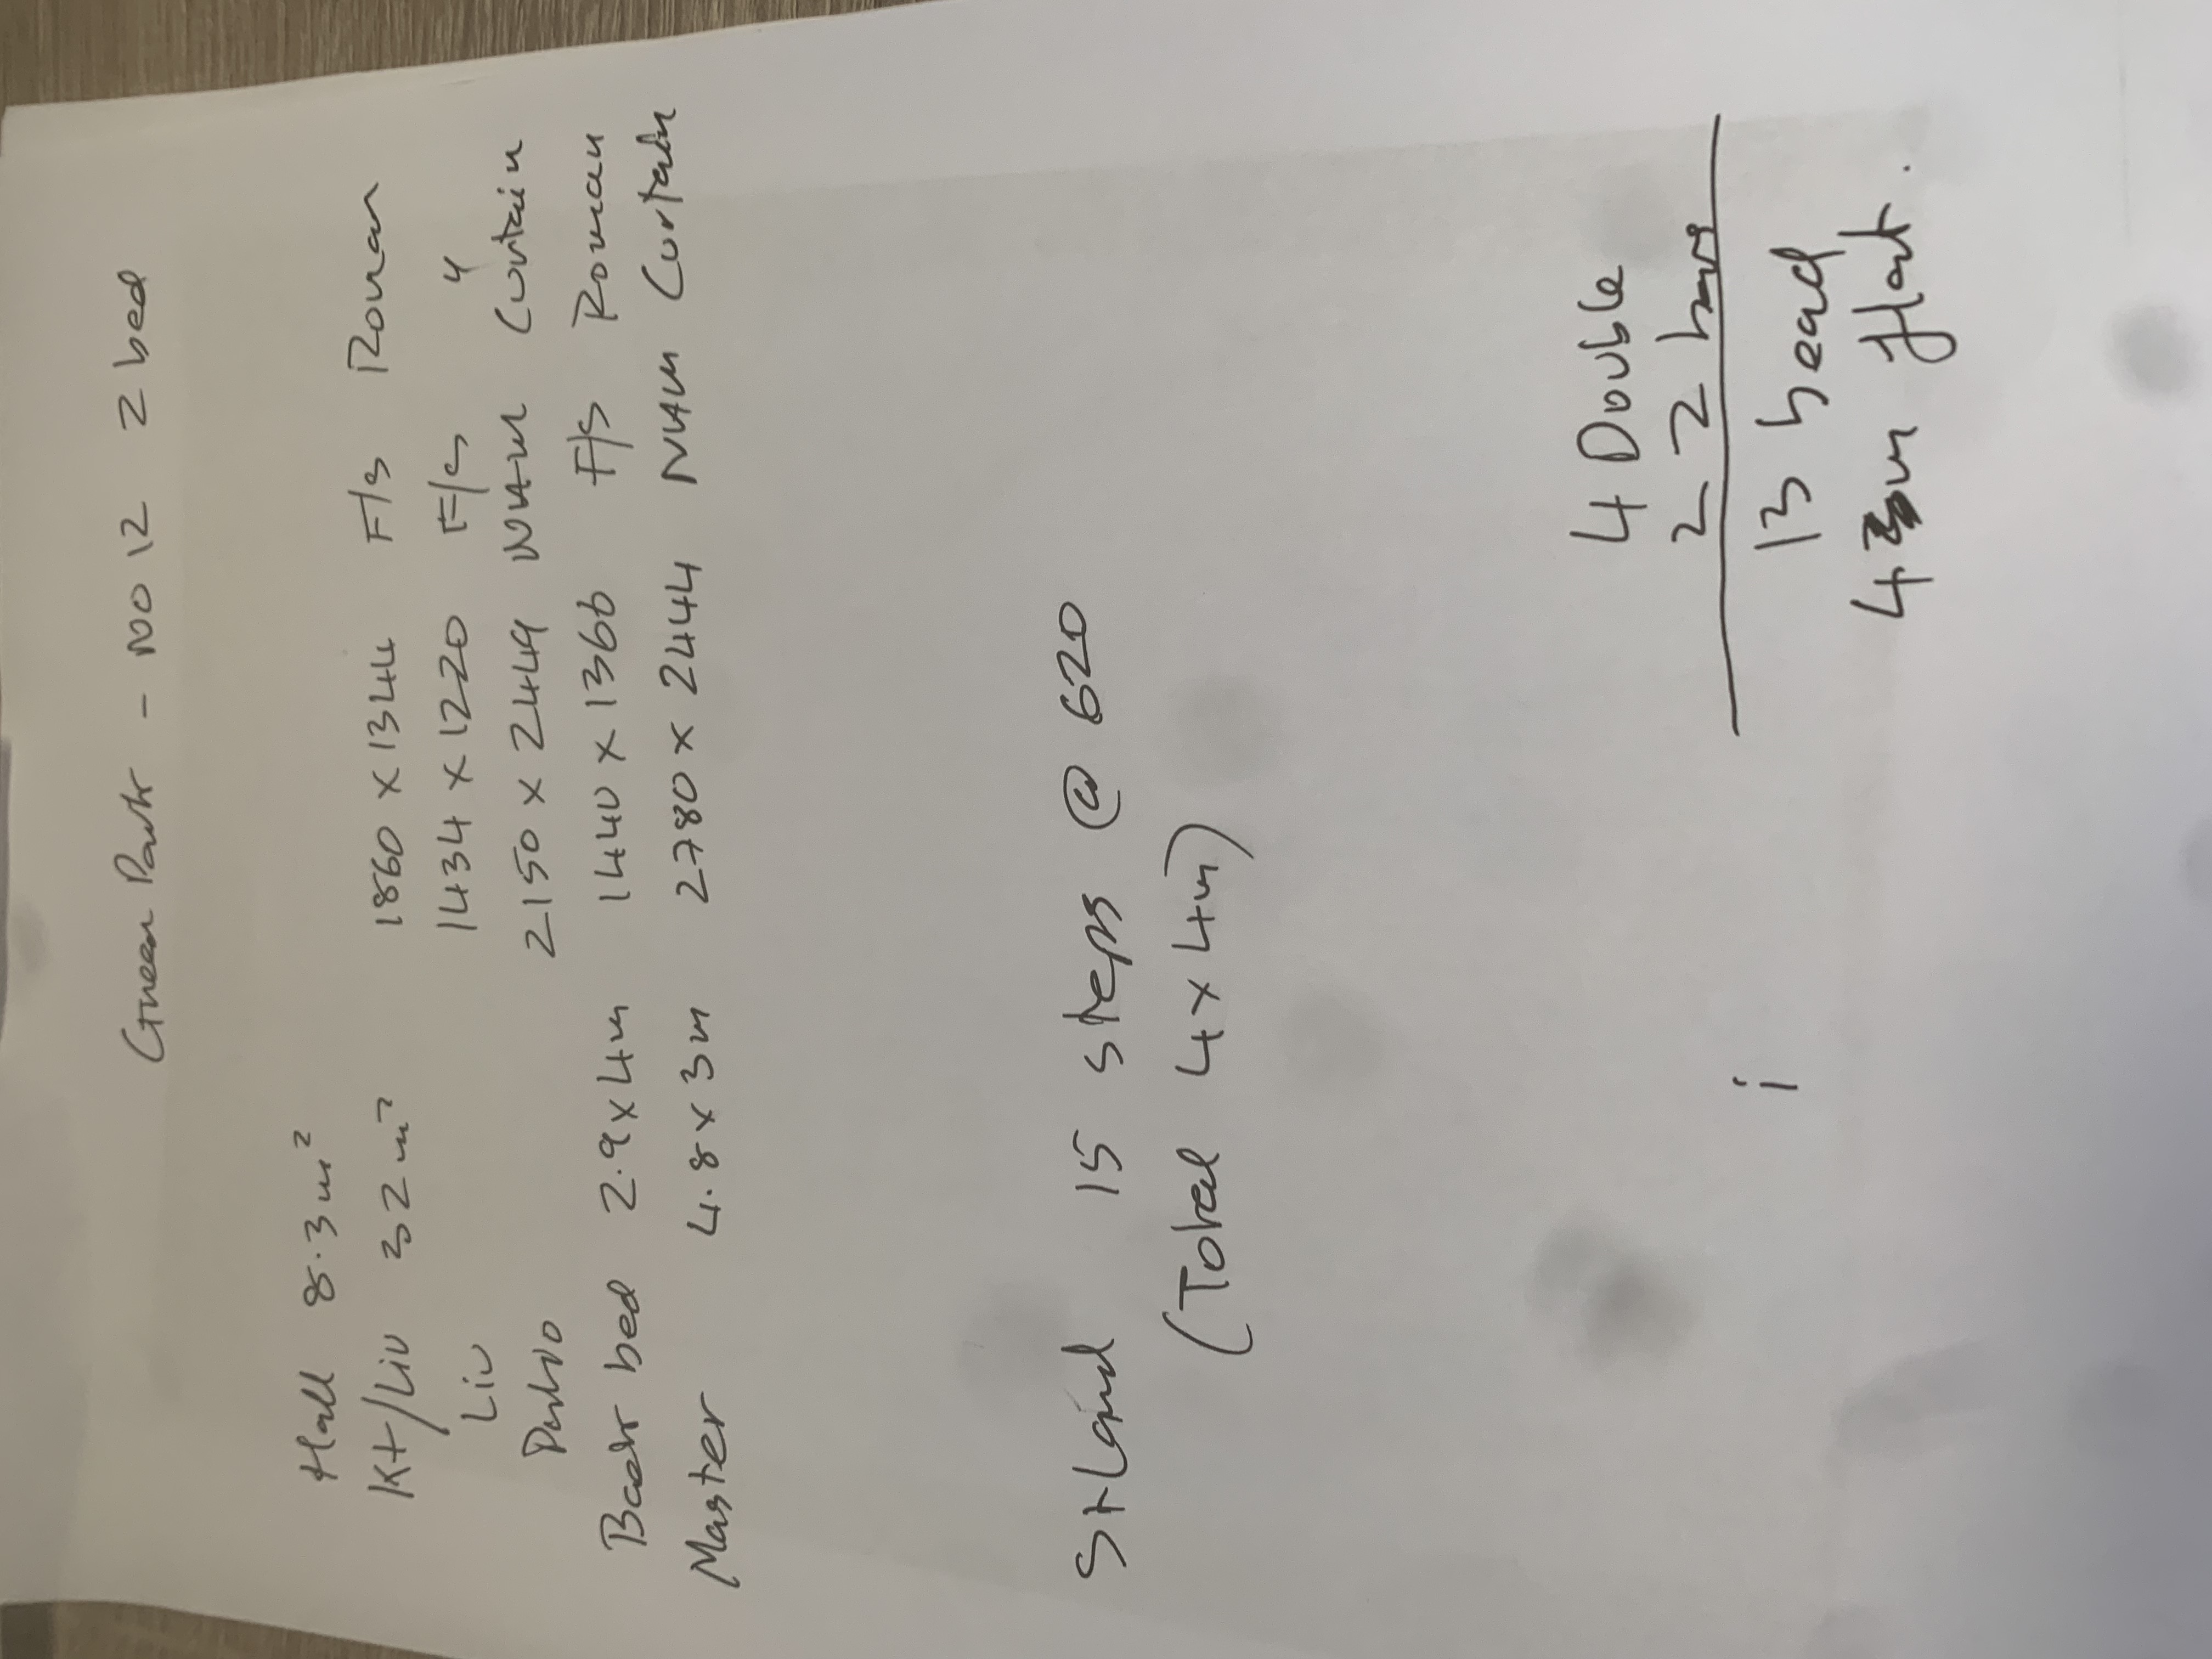 Green Park - No 12 2 bed
Hall 8.3m²
Kt/Liv 32m² 1860 x 1344 F/s Roman
Liv 1434 x 1220 F/s "
Patio 2150 x 2449 Curtain
Back bed 2.9 x 4m 1440 x 1366 F/s Roman
Master 4.8 x 3m 2780 x 2444 Curtain
St+Land 15 steps @ 620
(Total 4 x 4m)
4 Double
2 2 bars
13 head
4 m flat.